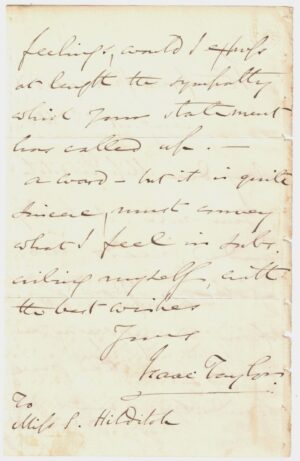 feelings, would I express
at length the sympathy
which your statement
has called up. —
a word – but it is quite
sincere, must convey
what I feel in subs-
cribing myself, with
the best wishes
Yours
Isaac Taylor
To
Miss S. Hilditch